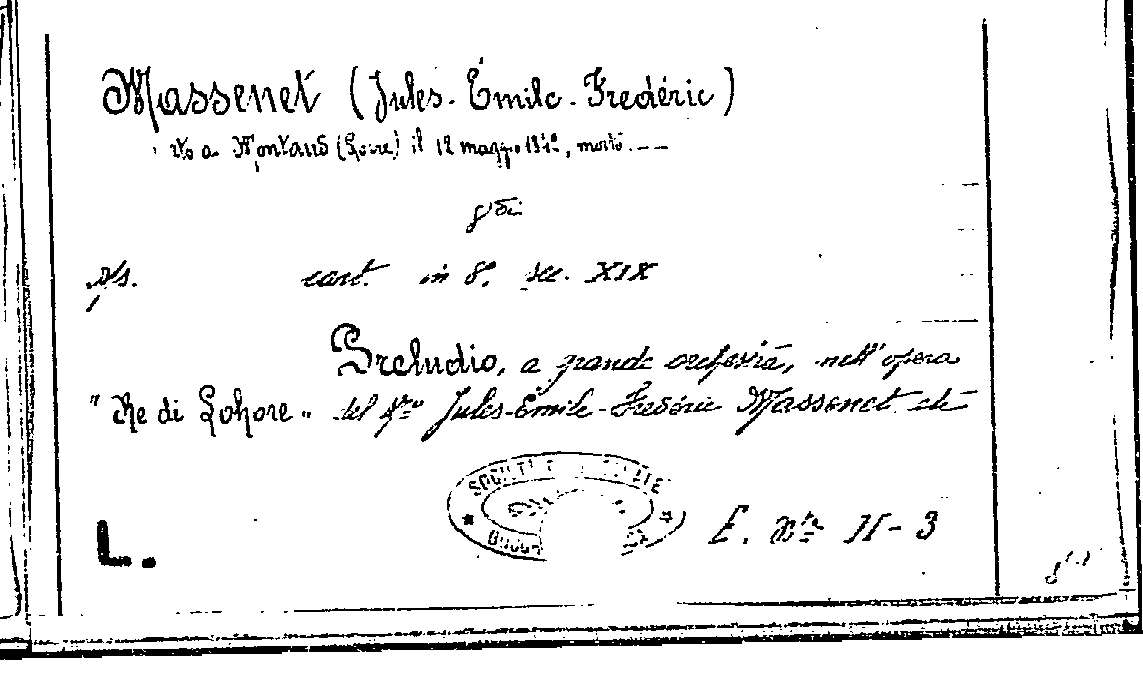 Massenet (Jules-Émile-Frédéric)
n.to a Montaud (Loire) il 12 maggio 1842, morto.——
cart. in 8º. sec. XIX
Preludio, a grande orchestra, nell'opera
"Re di Lahore" del M.ro Jules-Émile-Frédéric Massenet
L.
E. II-3